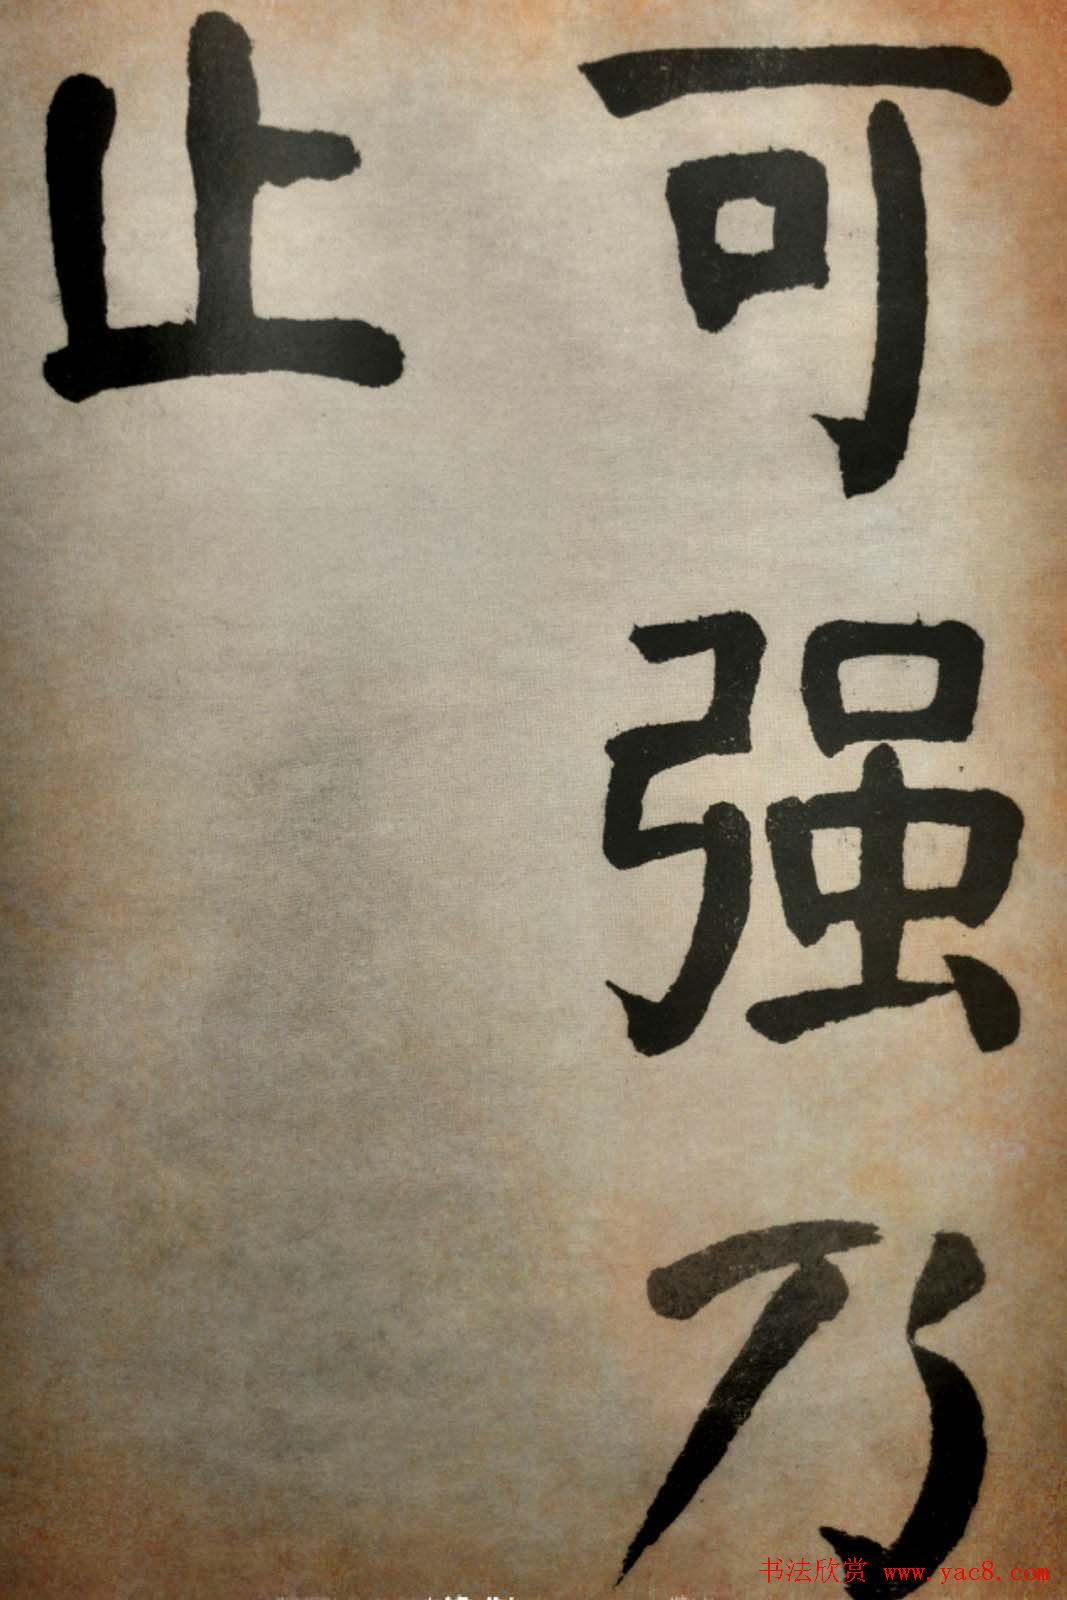 可强乃
止
书法欣赏 www.yac8.com